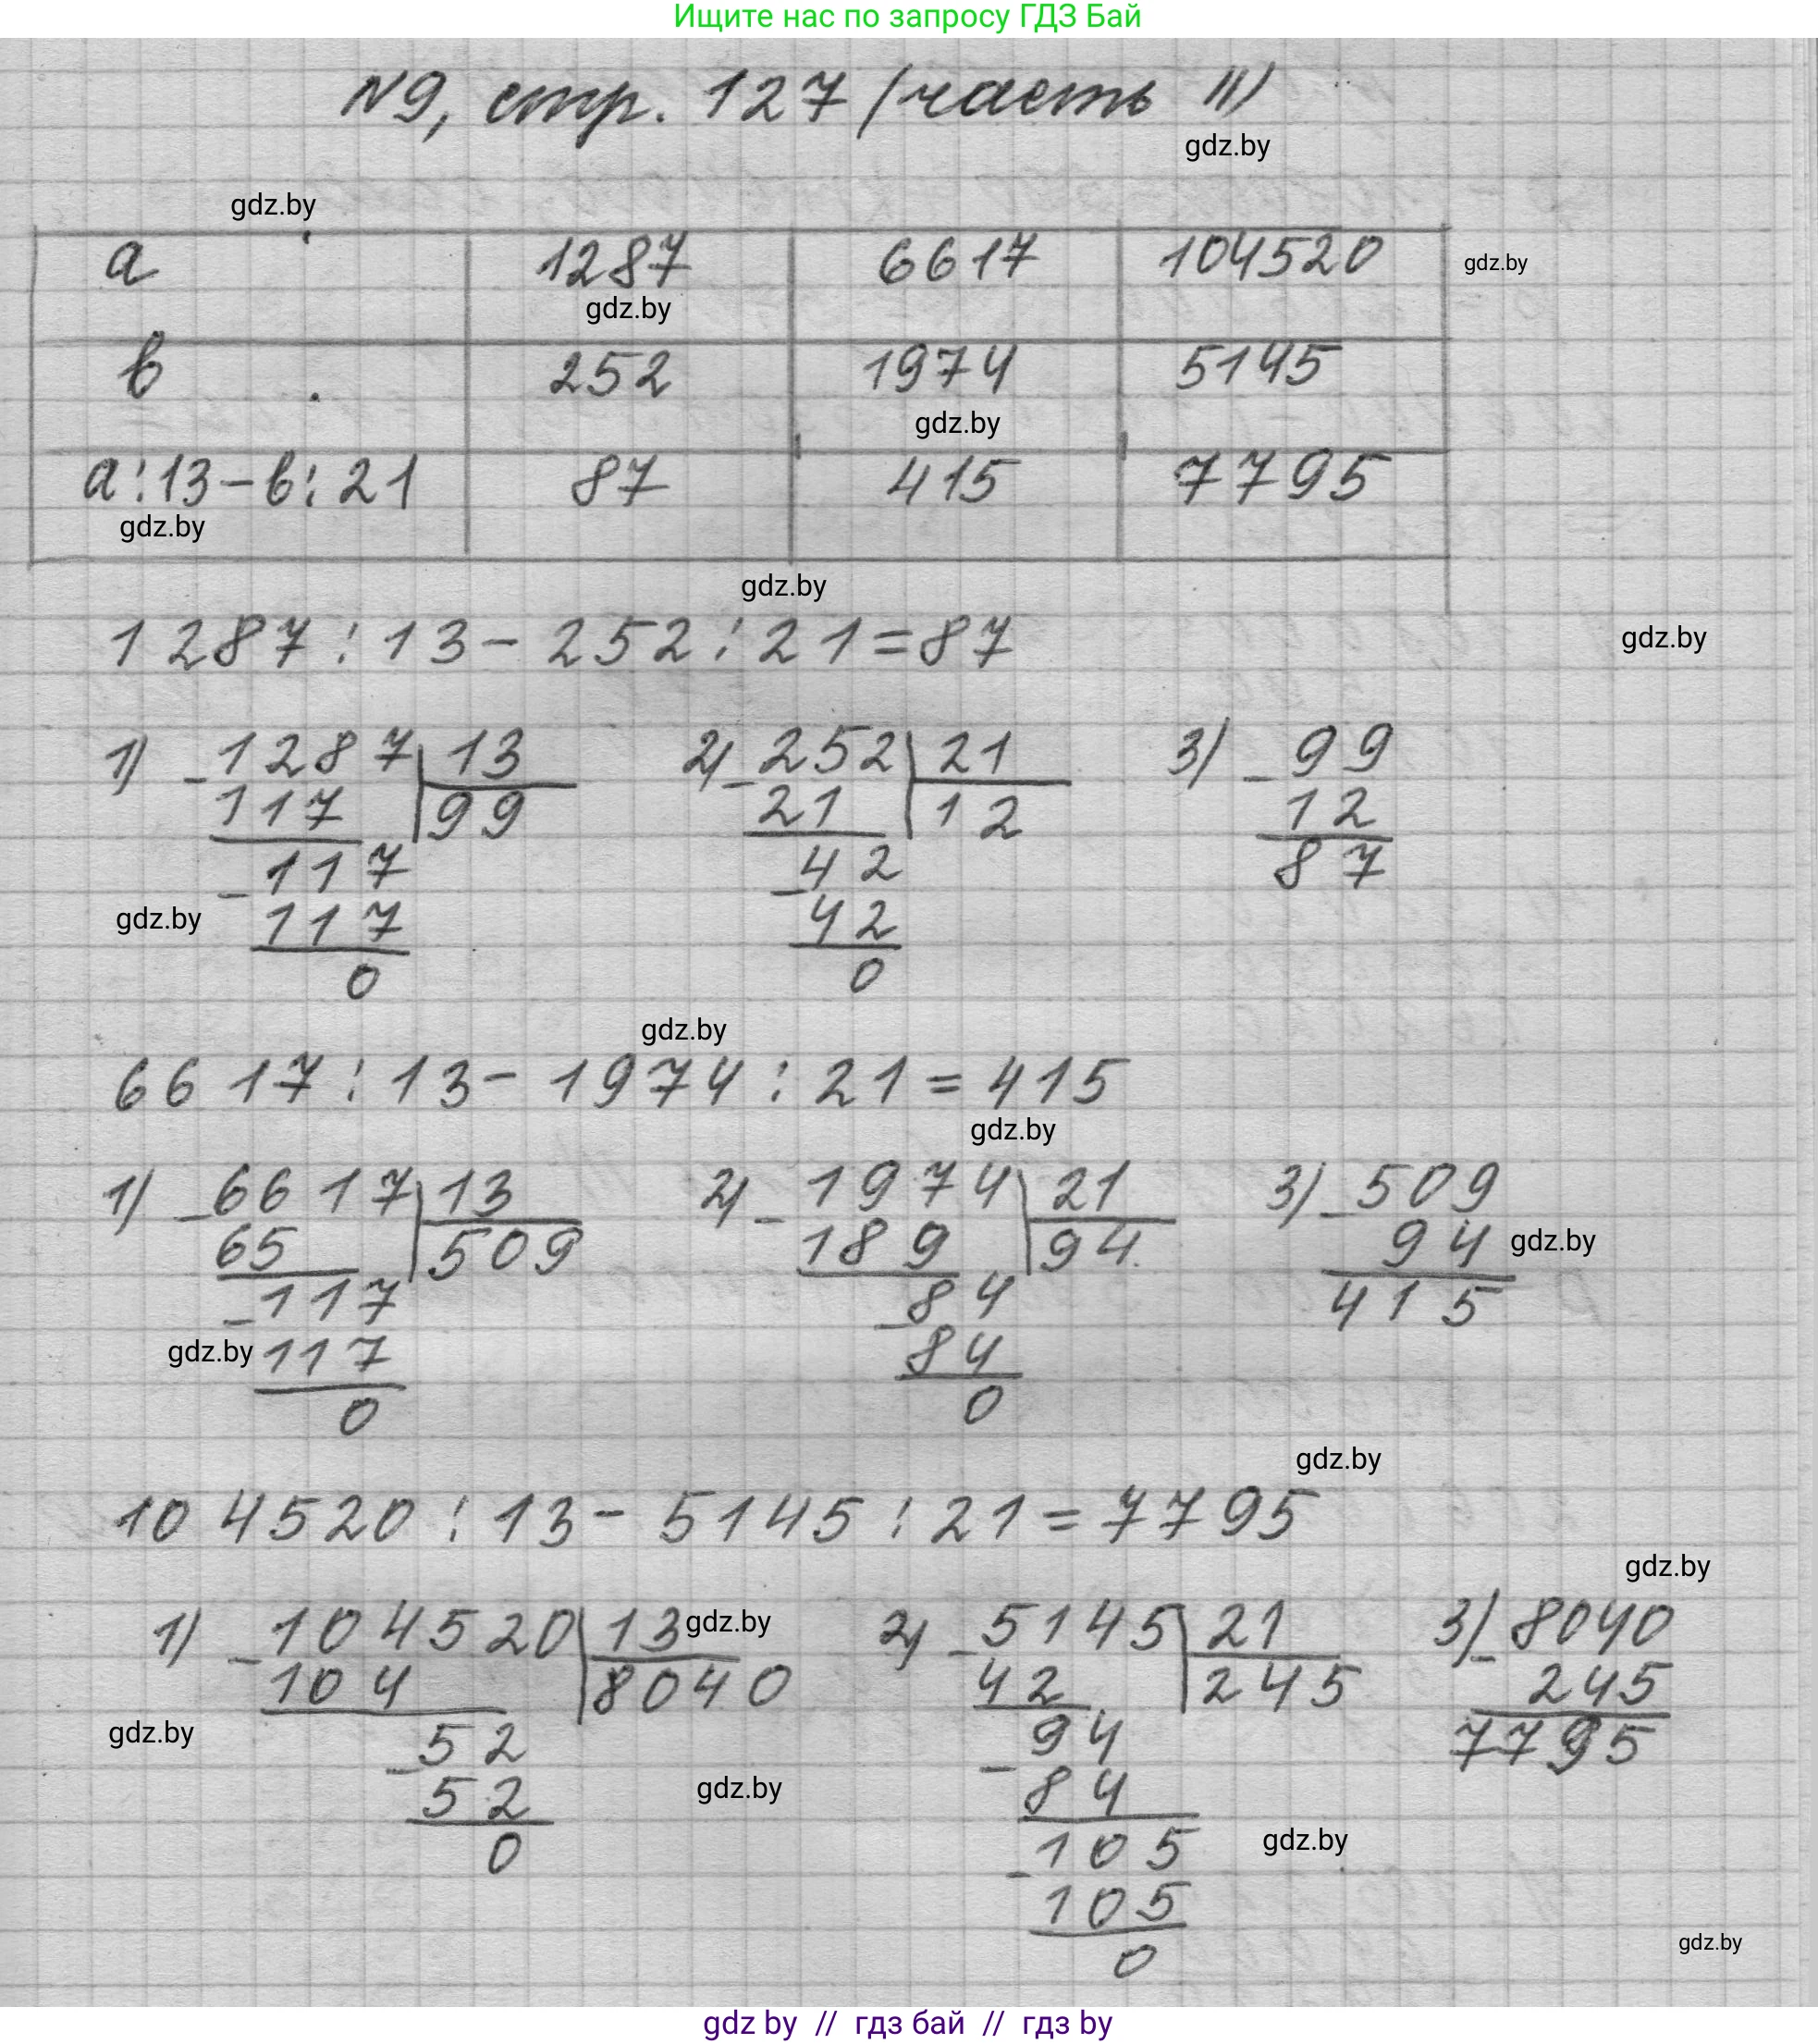 Ищите нас по запросу ГДЗ Бай
№9, стр. 127 (часть II)
gdz.by
gdz.by
a 1287 6617 104520
gdz.by
gdz.by
в 252 1974 5145
gdz.by
a:13-в:21 87 415 7795
gdz.by
gdz.by
1287:13-252:21=87
gdz.by
1) -1287 13 2) -252 21 3) -99
117 99 21 12 12
-117 -42 87
gdz.by 117 42
0 0
gdz.by
6617:13-1974:21=415
gdz.by
1) -6617 13 2) -1974 21 3) -509
65 509 189 94 94 gdz.by
-117 -84 415
gdz.by 117 84
0 0
gdz.by
104520:13-5145:21=7795
gdz.by
1) -104520 13 gdz.by 2) -5145 21 3) -8040
104 8040 42 245 245
gdz.by -52 -94 7795
52 gdz.by 84
0 -105 gdz.by
105
0 gdz.by
gdz by // гдз бай // гдз by